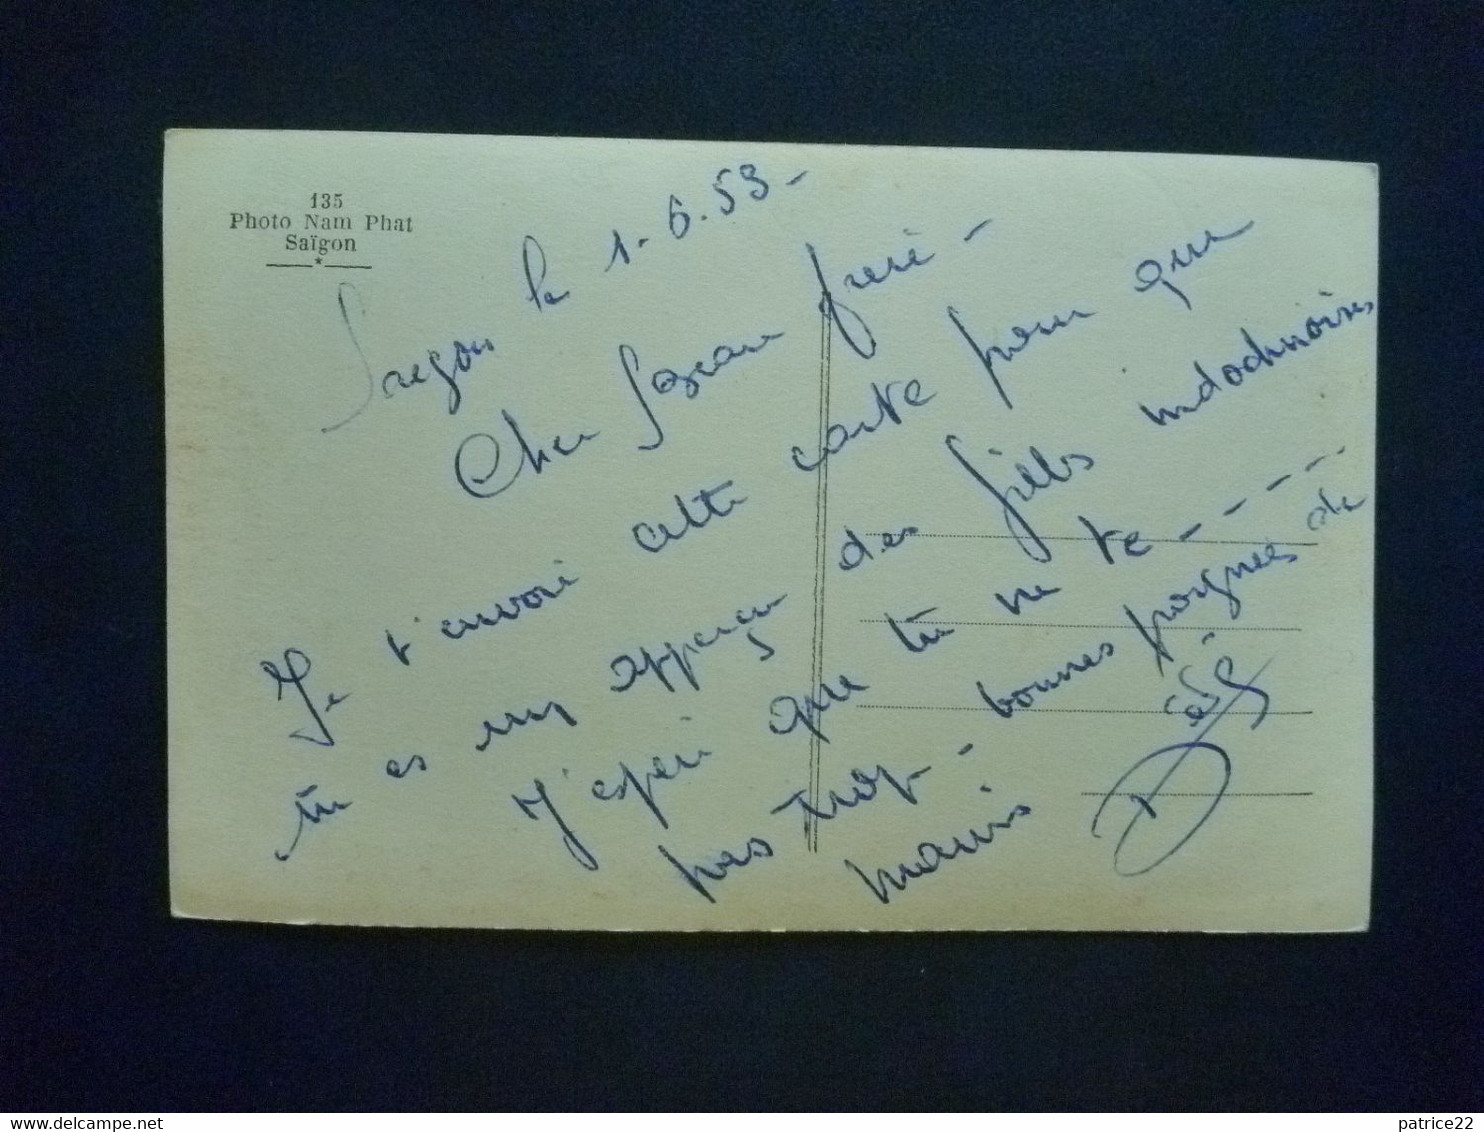 135
Photo Nam Phat
Saïgon
Saegon le 1.6.53-
Cher Beau frere -
Je t'envoie cette carte pour que
tu es un apperçu des filles indochinoises
J'espere que tu ne te - - - - -
pas trop - bonnes poignees de
mains
Dédé
delcampe.net
patrice22